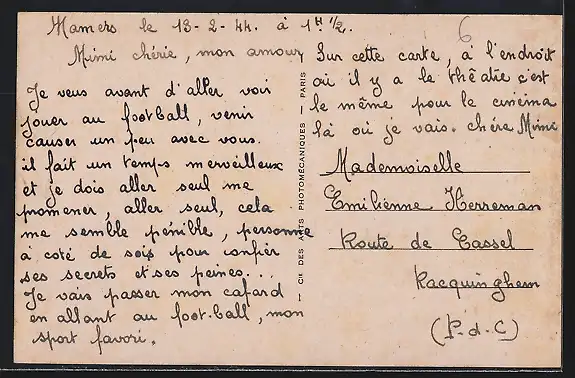 Mamers le 13-2-44. à 1H 1/2.
Mimi chérie, mon amour
Je veus avant d'aller voir
jouer au football, venir
causer un peu avec vous.
il fait un temps merveilleux
et je dois aller seul me
promener, aller seul, cela
me semble pénible, personne
à coté de sois pour confier
ses secrets et ses peines...
Je vais passer mon cafard
en allant au foot-ball, mon
sport favori.
CIE DES ARTS PHOTOMÉCANIQUES — PARIS
6
Sur cette carte, à l'endroit
où il y a le théatre c'est
le même pour le cinéma
là où je vais. chère Mimi
Mademoiselle
Emilienne Herreman
Route de Cassel
Racquinghem
(P-d-C)